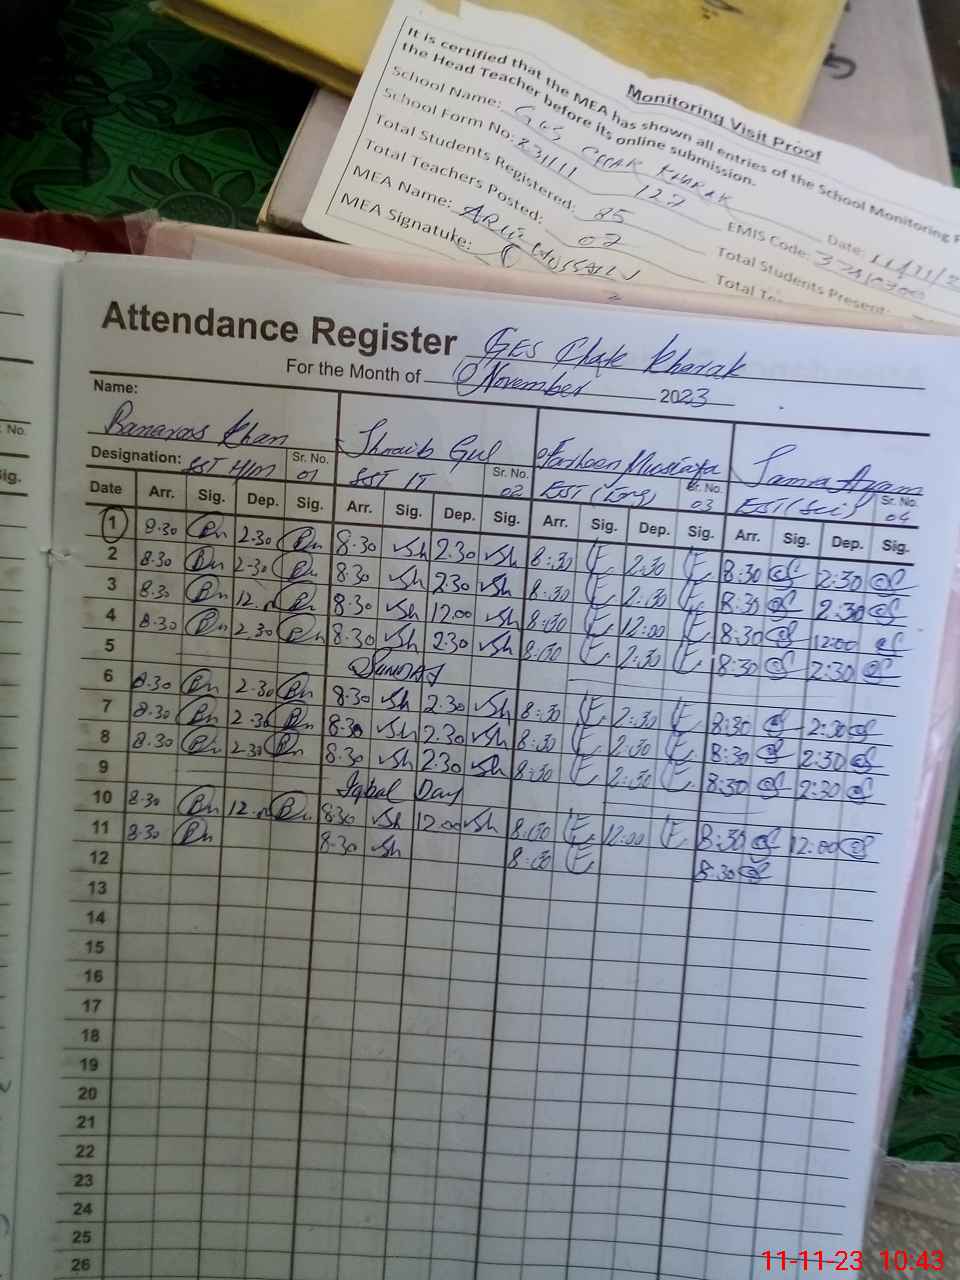 Monitoring Visit Proof
It is certified that the MEA has shown all entries of the School Monitoring
the Head Teacher before its online submission.
School Name: GES CHAK KHARAK
School Form No: 83111 127 Date: 11/11/2
Total Students Registered: 85 EMIS Code:
Total Teachers Posted: 02 Total Students Present:
MEA Name:
MEA Signatuke:
Attendance Register GES Chak Kharak
For the Month of November 2023
Name:
Banaras Khan Shoaib Gul Farheen Mustafa Samra Azam
Designation: SST H/M Sr. No. 01 SST IT Sr. No. 02 EST (Eng) Sr. No. 03 EST (Sci) Sr. No. 04
Date Arr. Sig. Dep. Sig. Arr. Sig. Dep. Sig. Arr. Sig. Dep. Sig. Arr. Sig. Dep. Sig.
1 8.30 2.30 8.30 2.30 8:30 2:30 8:30 2:30
2 8.30 2.30 8.30 2.30 8:30 2:30 8:30 2:30
3 8.30 12. 8.30 12.00 8:30 12:00 8:30 12:00
4 8.30 2.30 8.30 2.30 8:30 2:30 8:30 2:30
5 Sunday
6 8.30 2.30 8.30 2.30 8:30 2:30 8:30 2:30
7 8.30 2.30 8.30 2.30 8:30 2:30 8:30 2:30
8 8.30 2.30 8.30 2.30 8:30 2:30 8:30 2:30
9 Iqbal Day
10 8.30 12. 8.30 12.00 8:30 12:00 8:30 12:00
11 8.30 8.30 8:30 8:30
12
13
14
15
16
17
18
19
20
21
22
23
24
25
26
11-11-23 10:43